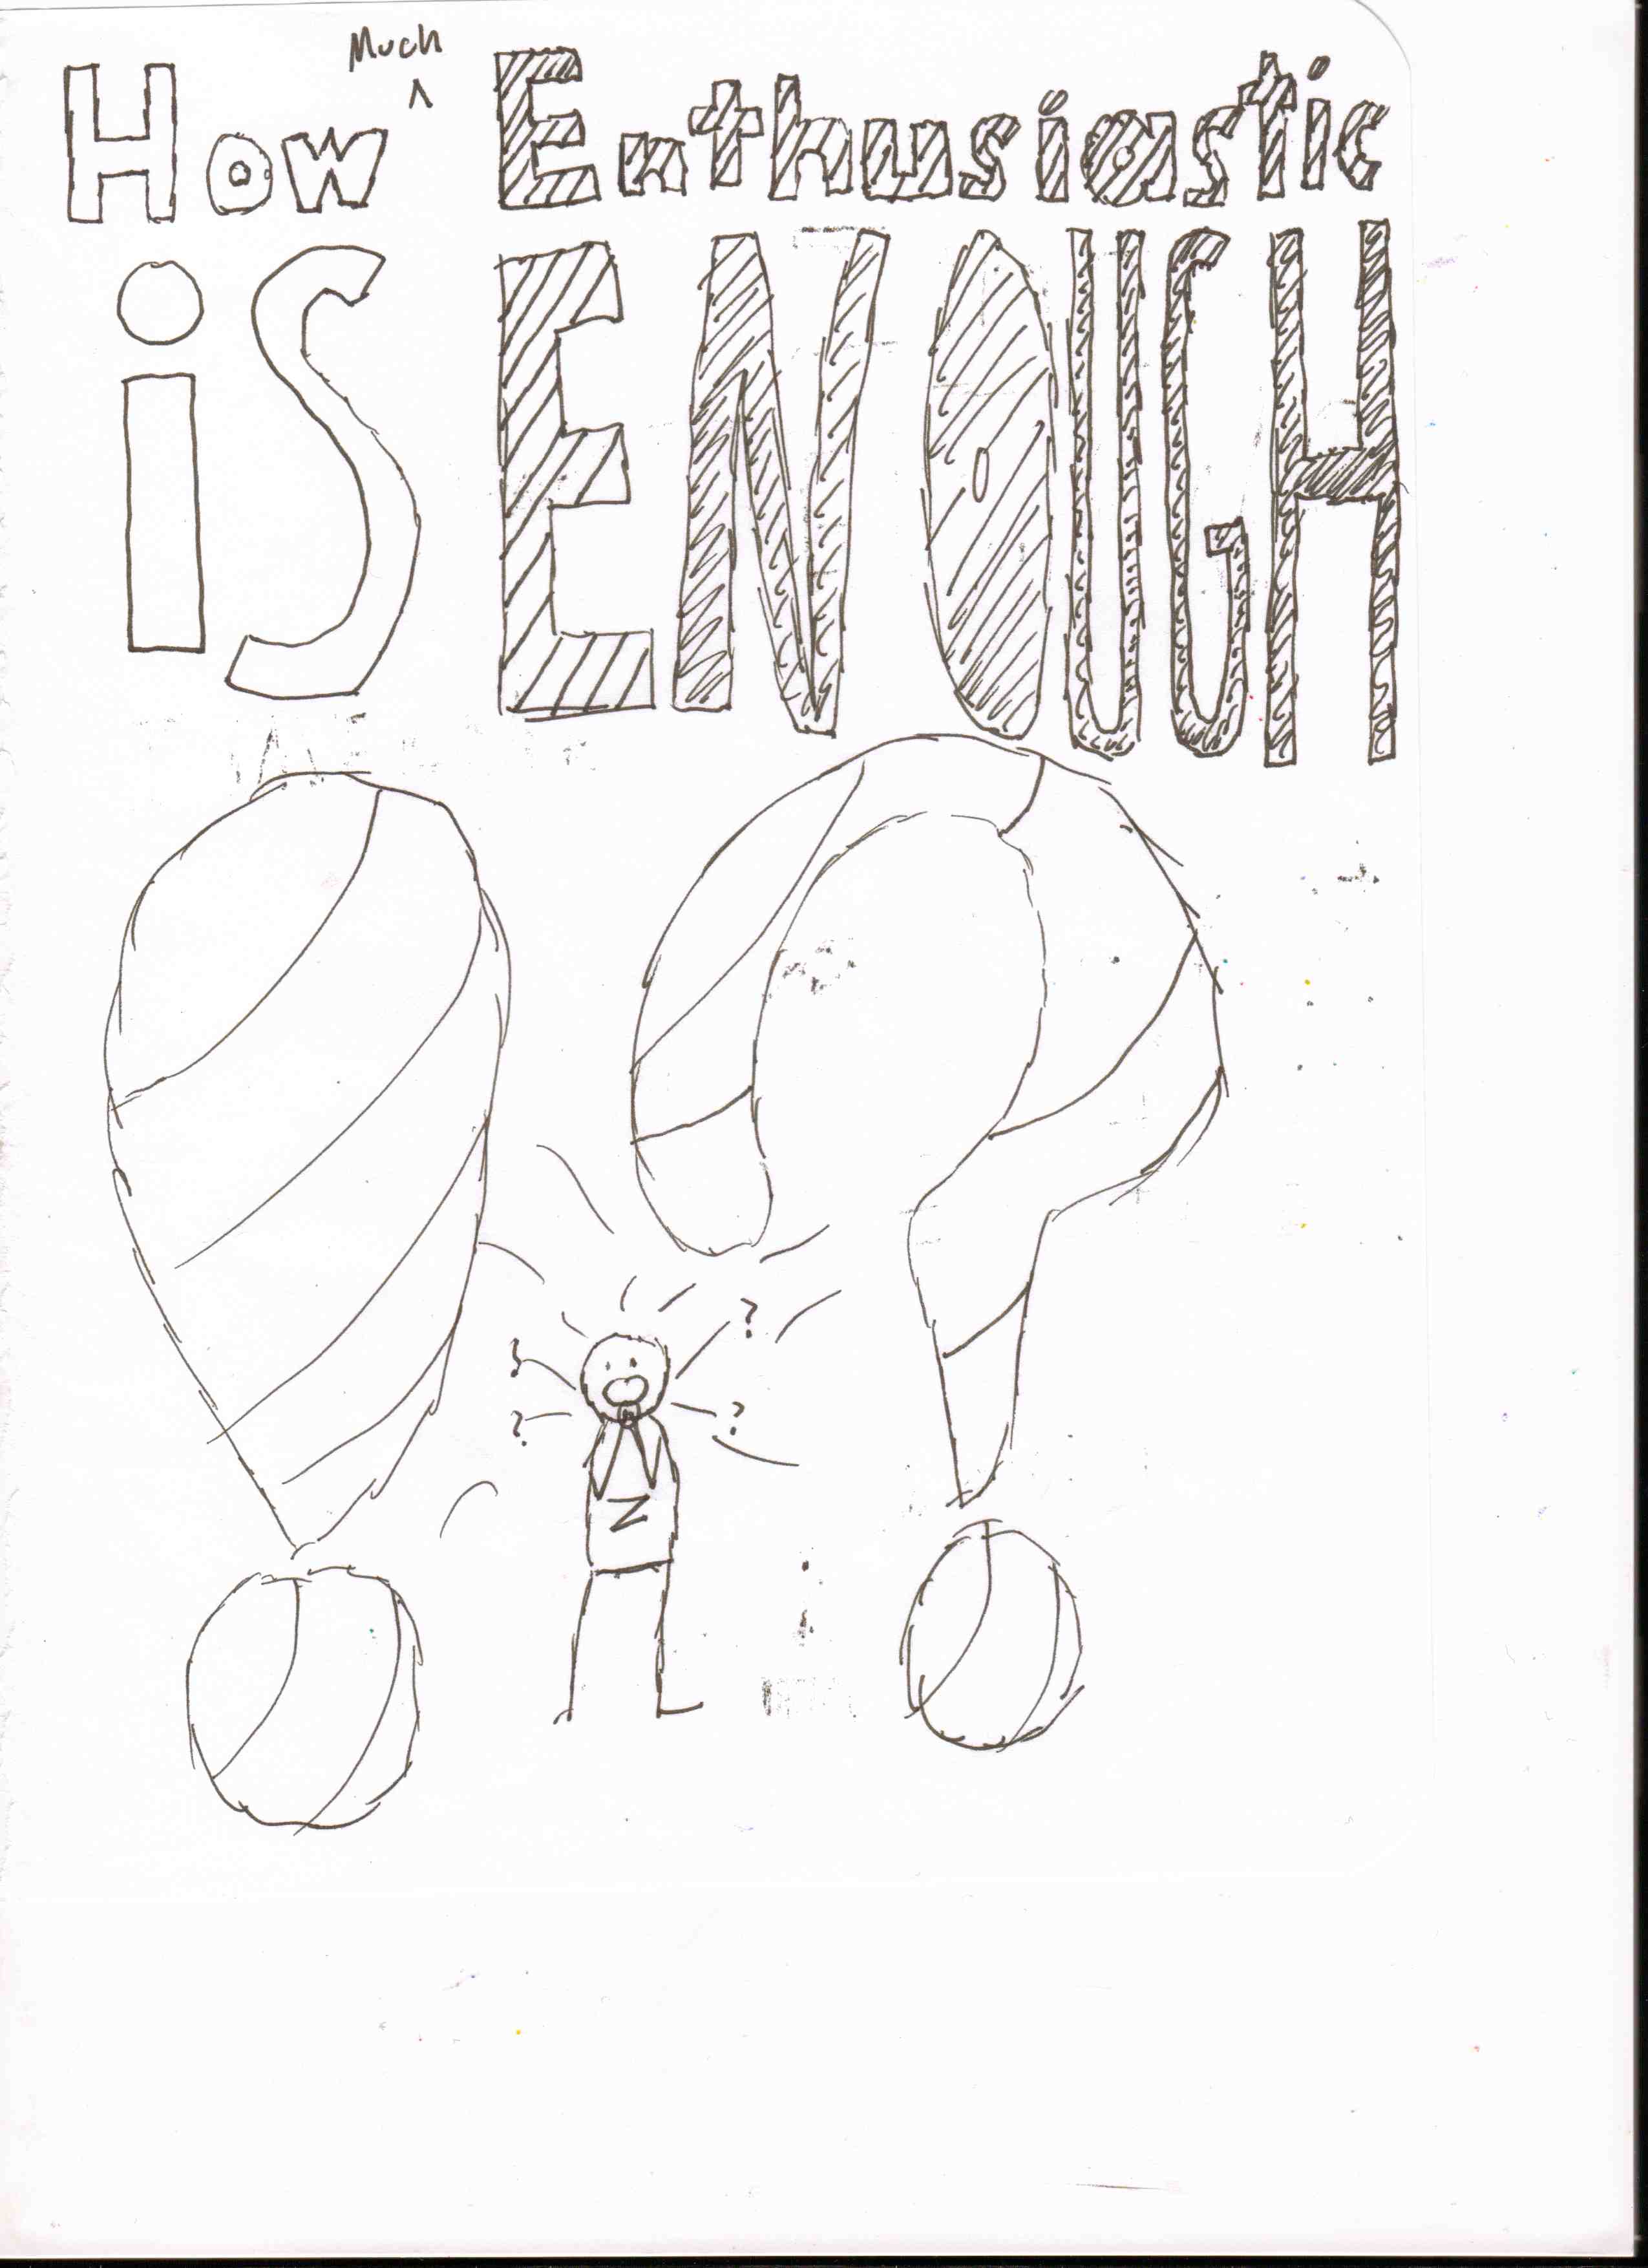 How Much Enthusiastic
iS ENOUGH
! ?
?
? ?
Z